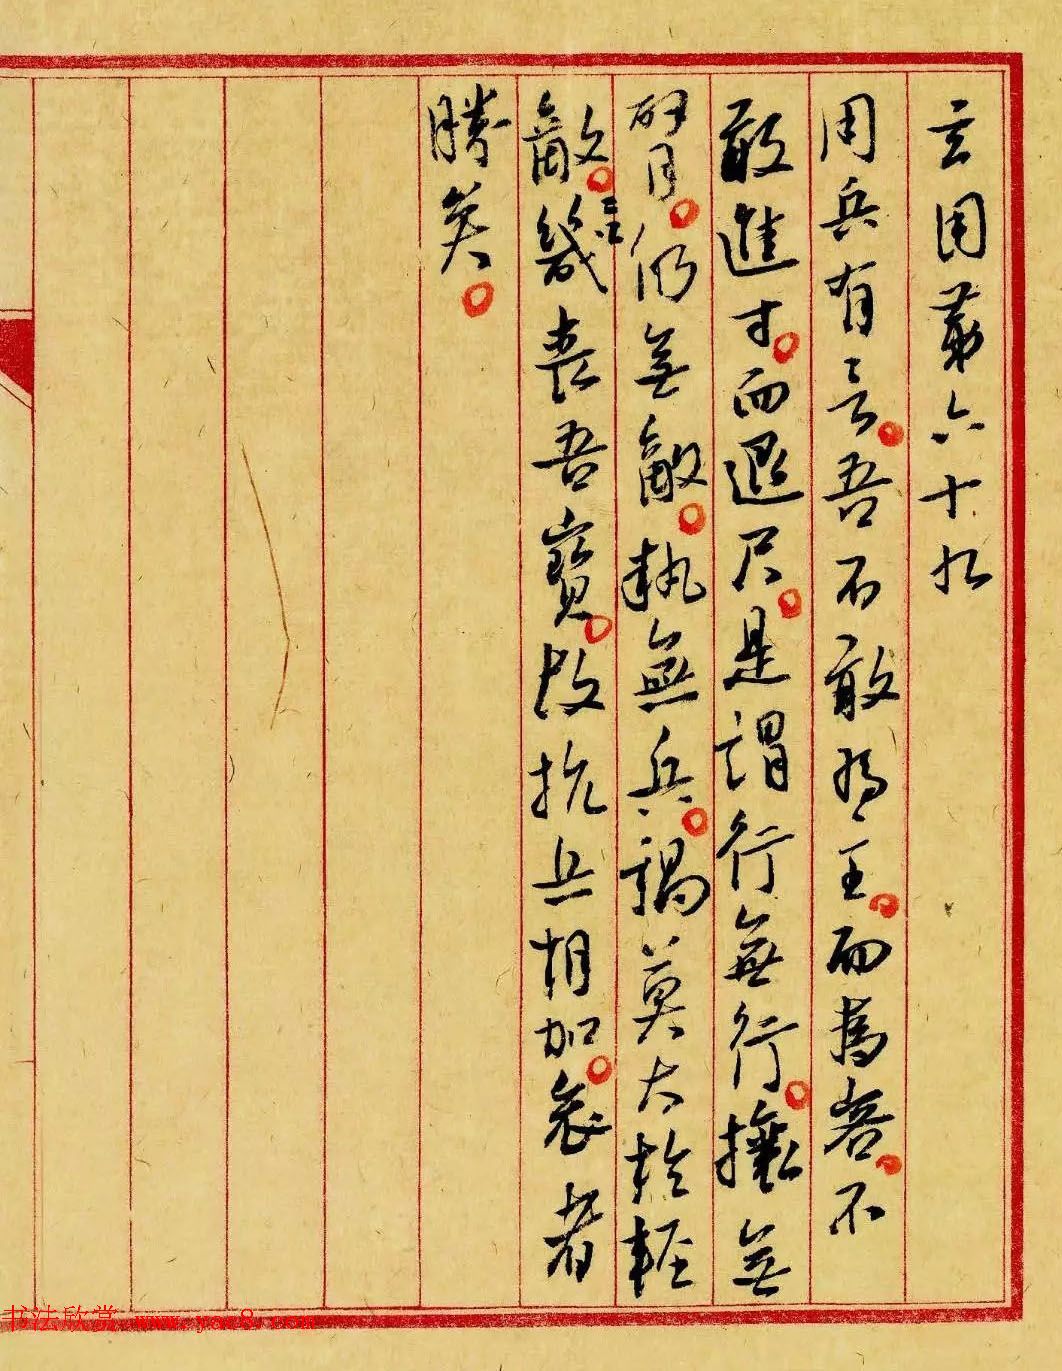 玄用第六十九
用兵有言。吾不敢為主。而為客。不
敢進寸。而退尺。是謂行無行。攘無
臂。仍無敵。執無兵。禍莫大於輕
敵。幾喪吾寶。故抗兵相加。哀者
勝矣。
书法欣赏 www.yac8.com